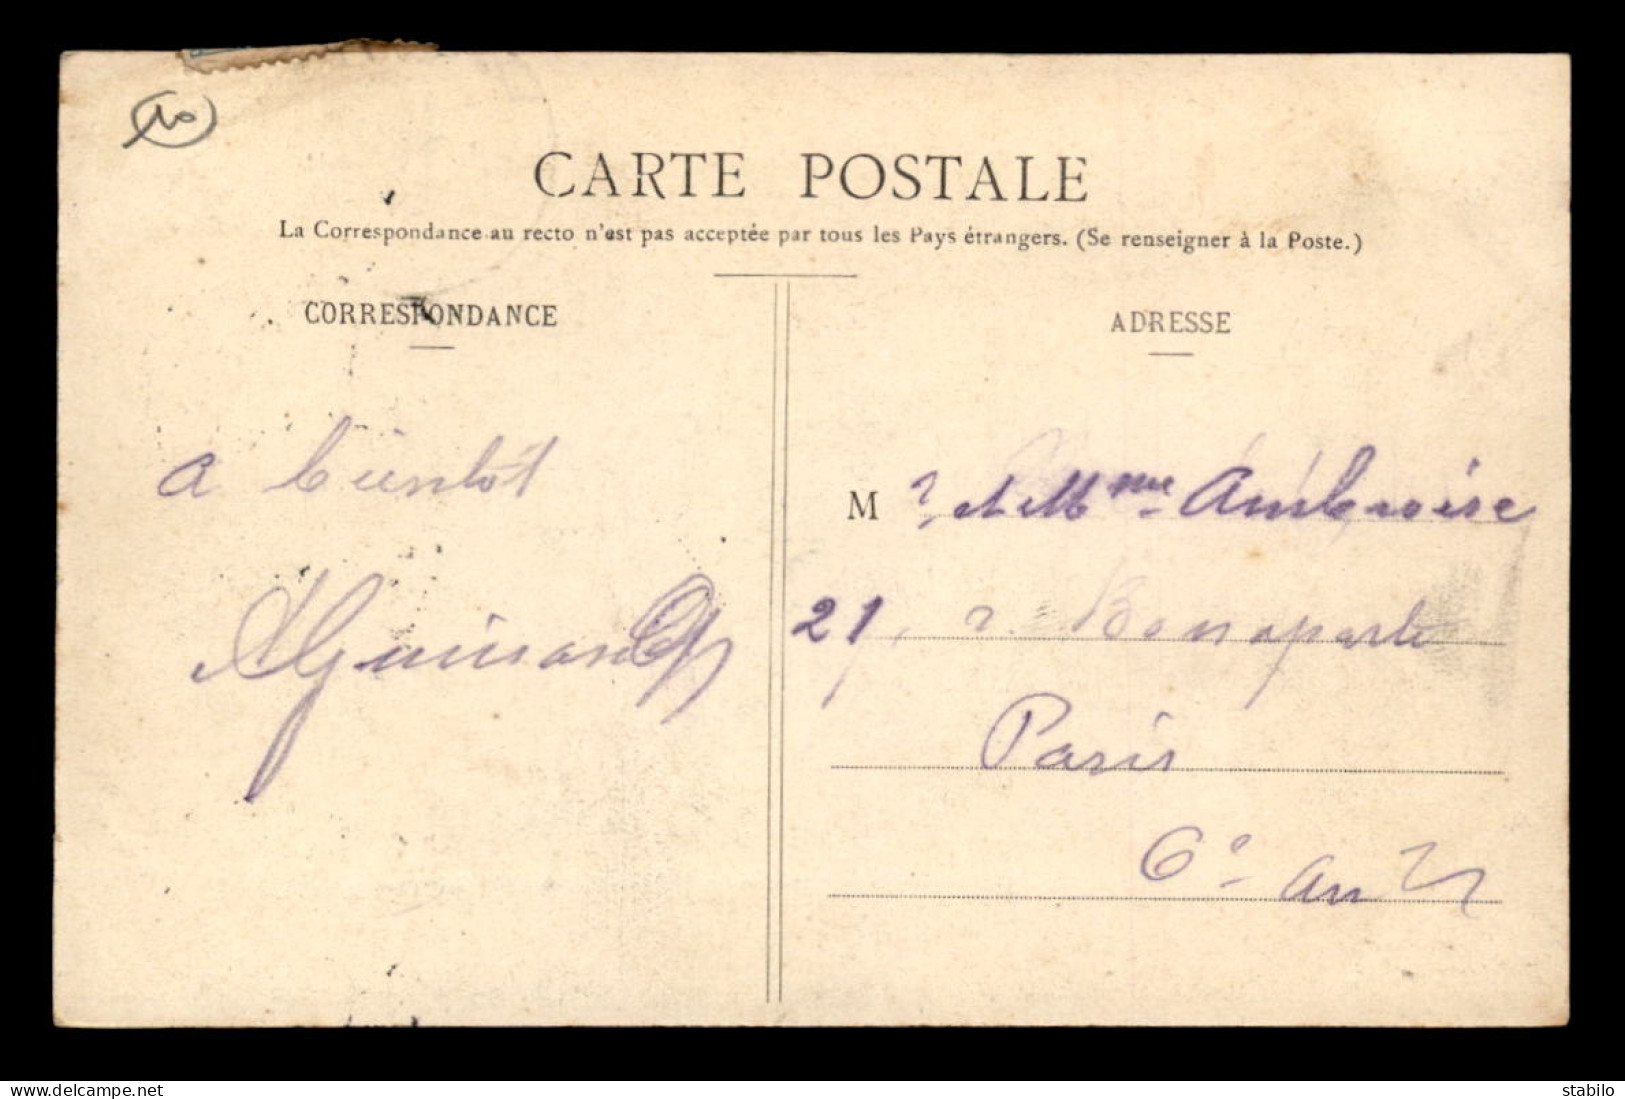 10
CARTE POSTALE
La Correspondance au recto n'est pas acceptée par tous les Pays étrangers. (Se renseigner à la Poste.)
CORRESPONDANCE
ADRESSE
a bientôt
M r et Mme Ambroise
21, r. Bonaparte
Paris
6e arrt
www.delcampe.net
stabilo